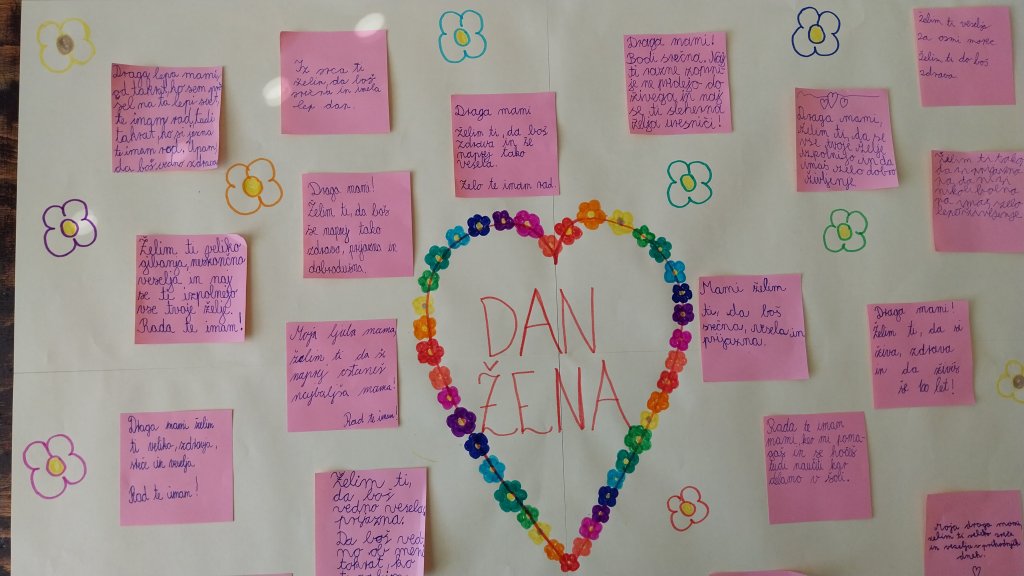 Draga lepa mami,
od takrat, ko sem pri
šel na ta lepi svet
te imam rad, tudi
takrat, ko si jezna
te imam rad. Upam
da boš vedno zdrava
Iz srca ti
želim, da boš
srečna in imela
lep dan.
Draga mami
želim ti, da boš
zdrava in še
naprej tako
vesela.
Zelo te imam rad.
Draga mami!
Bodi srečna. Naj
ti razne
še ne pridejo do
živega in naj
se ti sleherna
želja uresniči!
Draga mami,
želim ti, da se
vse tvoje želje
izpolnijo in da
imaš zelo dobro
življenje
želim ti veselja
za osmi marec
želim ti da boš
zdrava
Želim ti
da
nikoli bolna
pa imaš zelo
lepo
Draga mami!
Želim ti, da boš
še naprej tako
zdrava, prijazna in
dobrodušna.
Želim ti veliko
gibanja, neskončno
veselja in naj
se ti izpolnejo
vse tvoje želje.
Rada te imam!
DAN
ŽENA
Mami želim
ti, da boš
srečna, vesela in
prijazna.
Draga mami!
Želim ti, da si
živa, zdrava
in da živiš
še to let!
Moja ljuba mama,
želim ti da š
naprej ostaneš
najboljša mama!
Rad te imam!
Draga mami želim
ti veliko, zdravja,
sreče in veselja.
Rad te imam!
Želim ti,
da boš
vedno vesela,
prijazna.
Da boš ved
no ob meni
takrat, ko
Rada te imam
mami, ker mi poma
gaš in se hočeš
tudi naučiti kar
delamo v šoli.
Moja draga mami,
želim ti veliko sreče
in veselja v prihodnjih
dneh.